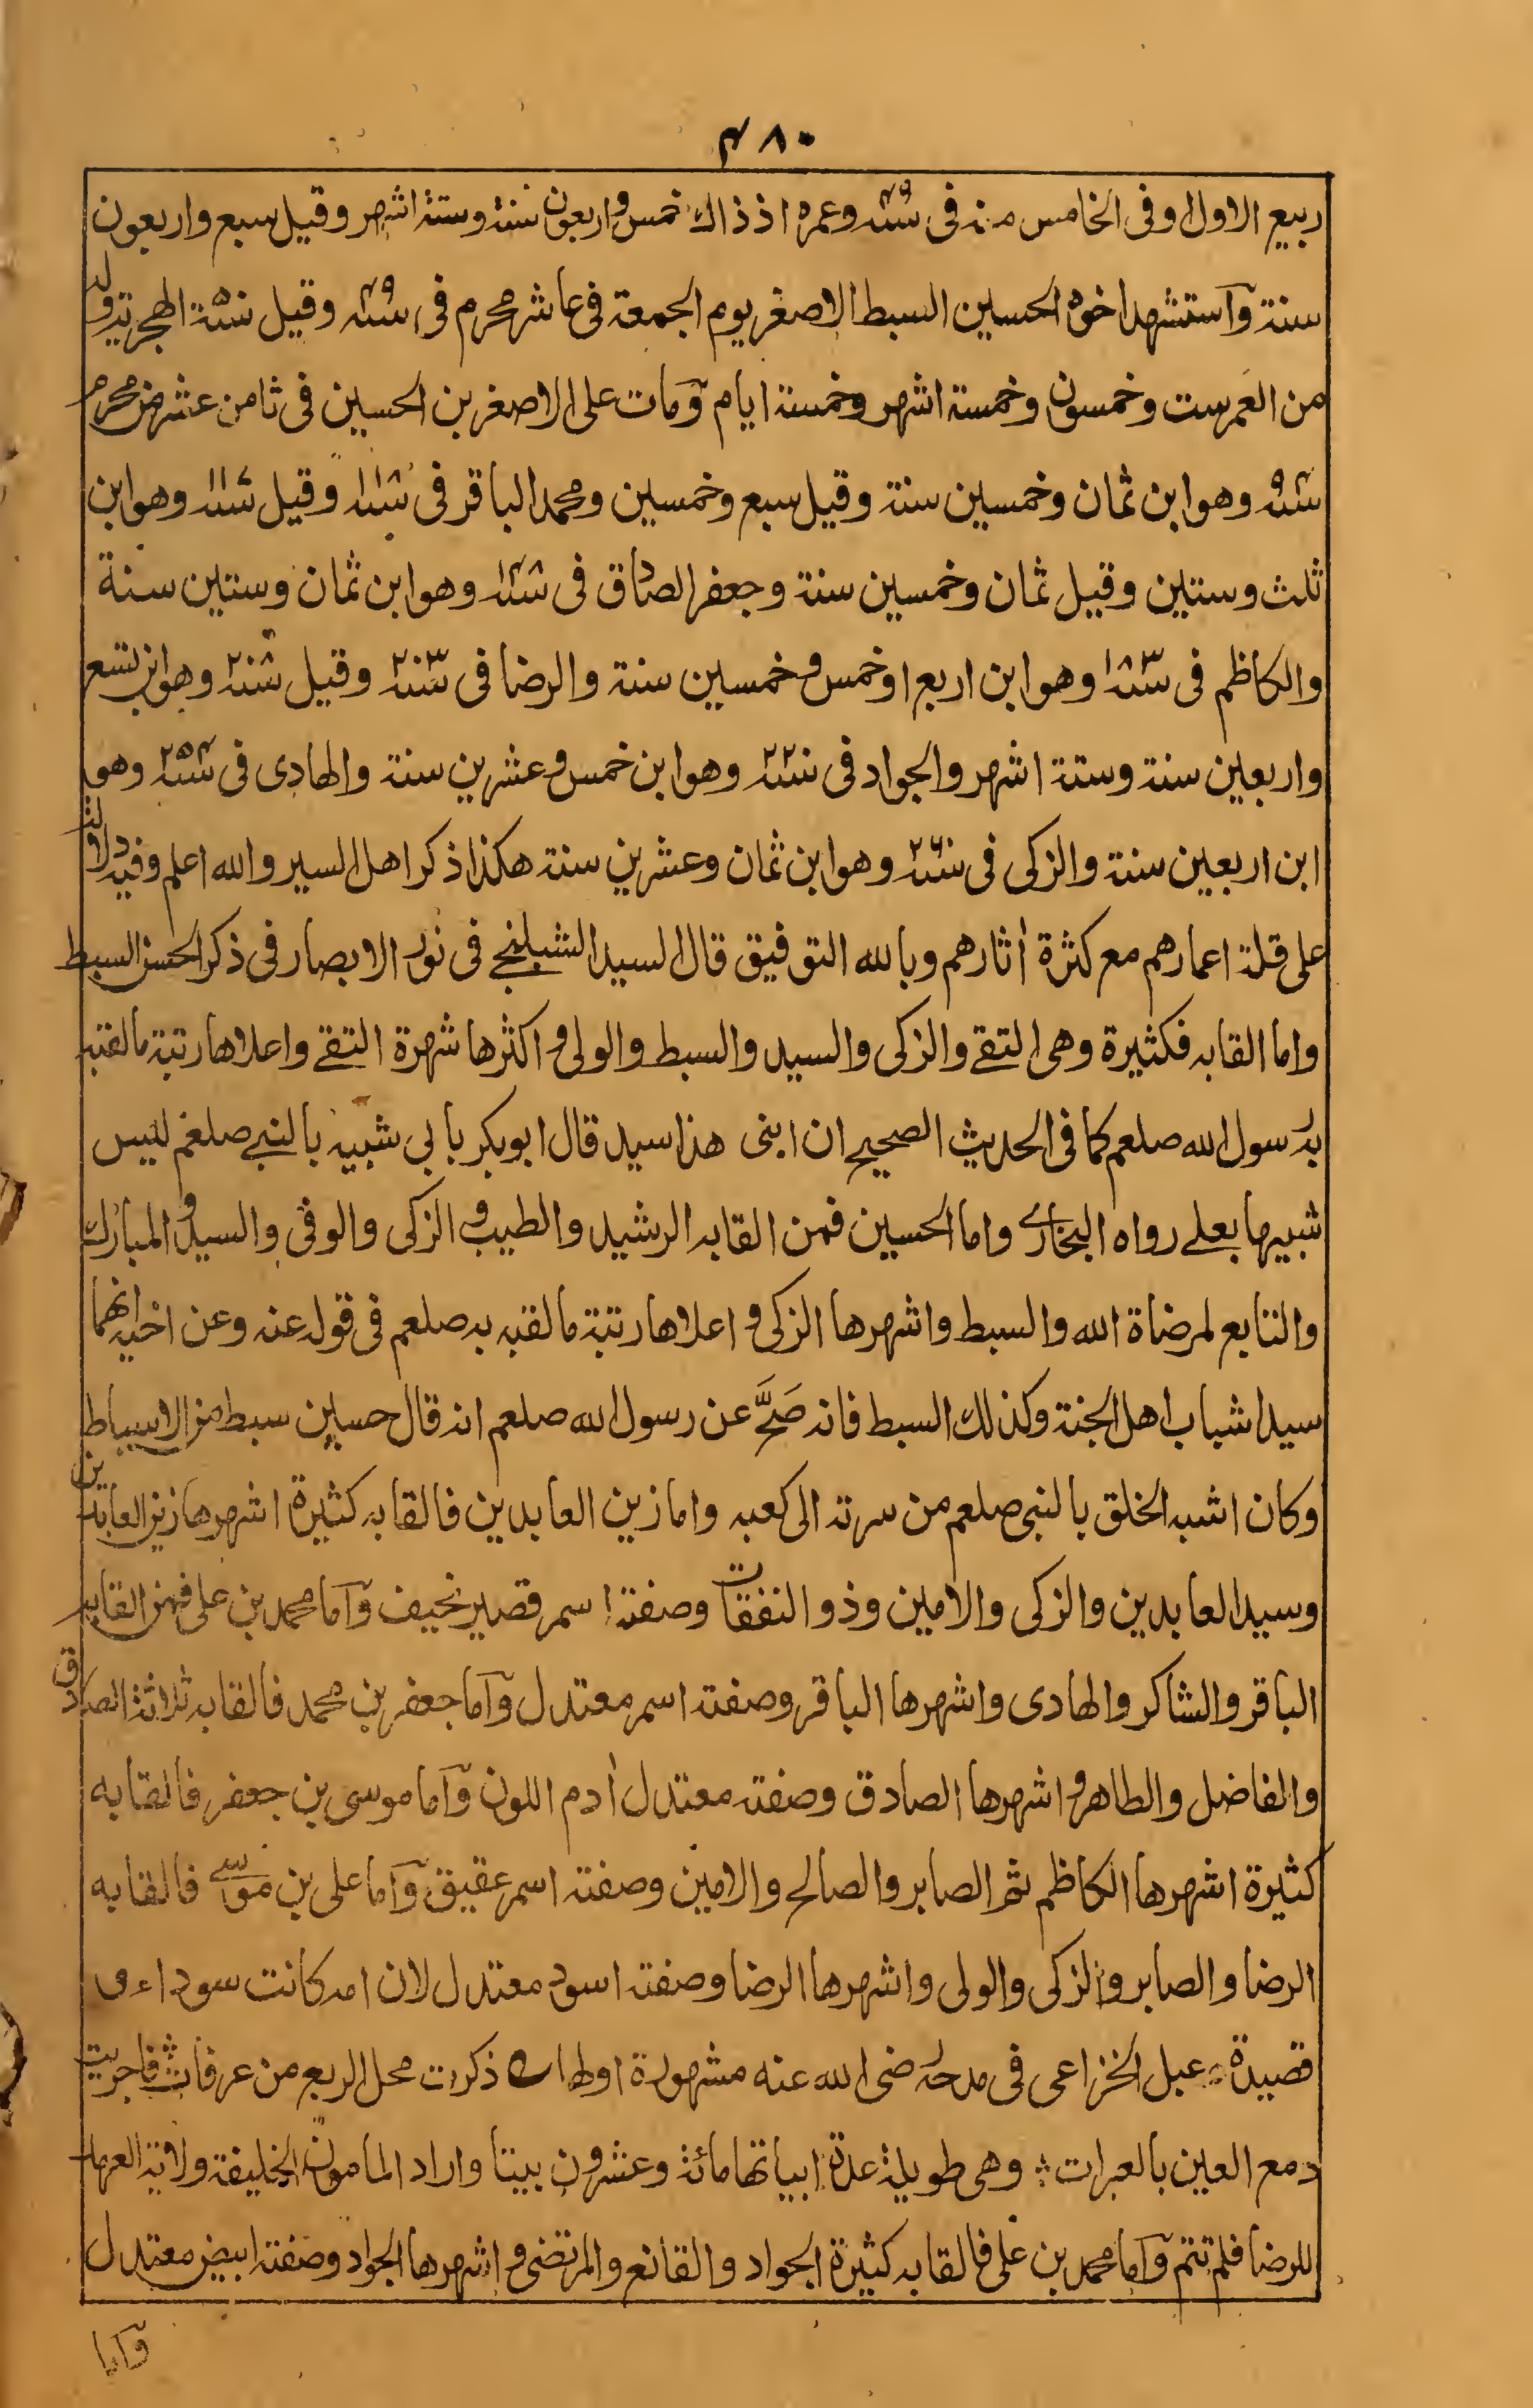 ۴۸۰
ربيع الاول وفى الخامس منه فى سنة ۴۹ وعمره اذ ذاك خمس واربعون سنة وستة اشهر وقيل سبع واربعون
سنة وآستشهد اخوه الحسين السبط الاصغر يوم الجمعة فى عاشر محرم فى سنة وقيل سنة الهجرية وله
من العمر ست وخمسون وخمسة اشهر وخمسة ايام وٓمات على الاصغر بن الحسين فى ثامن عشر من محرم
سنة وهو ابن ثمان وخمسين سنة وقيل سبع وخمسين ومحمد الباقر فى سنة وقيل سنة وهو ابن
ثلث وستين وقيل ثمان وخمسين سنة وجعفر الصادق فى سنة ۱۴۸ وهو ابن ثمان وستين سنة
والكاظم فى سنة ۱۸۳ وهو ابن اربع او خمس وخمسين سنة والرضا فى سنة ۲۰۳ وقيل سنة ۲۰۸ وهو ابن تسع
واربعين سنة وستة اشهر والجواد فى سنة ۲۲۰ وهو ابن خمس وعشرين سنة والهادى فى سنة ۲۵۴ وهو
ابن اربعين سنة والزكى فى سنة ۲۶۰ وهو ابن ثمان وعشرين سنة هكذا ذكر اهل السير والله اعلم وفيه دلالة
على قلة اعمارهم مع كثرة اٰثارهم وبالله التوفيق قال السيد الشبلنجے فى نور الابصار فى ذكر الحسن السبط
واما القابه فكثيرة وهى التقے والزكى والسيد والسبط والولى واكثرها شهرة التقے واعلاها رتبة ما لقبه
به رسول الله صلعم كما فى الحديث الصحيح ان ابنى هذا سيد قال ابو بكر بابي شبيه بالنبے صلعم ليس
شبيها بعلے رواه البخارے واما الحسين فمن القابه الرشيد والطيب والزكى والوفى والسيد والمبارك
والتابع لمرضاة الله والسبط واشهرها الزكى واعلاها رتبة ما لقبه به صلعم فى قوله عنه وعن اخيه انهما
سيدا شباب اهل الجنة وكذلك السبط فانه صَحَّ عن رسول الله صلعم انه قال حسين سبط من الاسباط
وكان اشبه الخلق بالنبى صلعم من سرته الى كعبه واما زين العابدين فالقابه كثيرة اشهرها زين العابدين
وسيد العابدين والزكى والامين وذو النفقات وصفته اسمر قصير نحيف وآما محمد بن على فمن القابه
الباقر والشاكر والهادى واشهرها الباقر وصفته اسمر معتدل وآما جعفر بن محمد فالقابه ثلاثة الصادق
والفاضل والطاهر واشهرها الصادق وصفته معتدل اٰدم اللون وآما موسى بن جعفر فالقابه
كثيرة اشهرها الكاظم ثم الصابر والصالح والامين وصفته اسمر عقيق وآما على بن موسے فالقابه
الرضا والصابر والزكى والولى واشهرها الرضا وصفته اسود معتدل لان امه كانت سوداء و
قصيدة دعبل الخزاعى فى مدحه رضى الله عنه مشهورة اولها ذكرت محل الربع من عرفات فاجريت
دمع العين بالعبرات وهى طويلة عدة ابياتها مائة وعشرون بيتا واراد المامون الخليفة ولاية العهد
للرضا فلم تتم وآما محمد بن على فالقابه كثيرة الجواد والقانع والمرتضى واشهرها الجواد وصفته ابيض معتدل
وآما